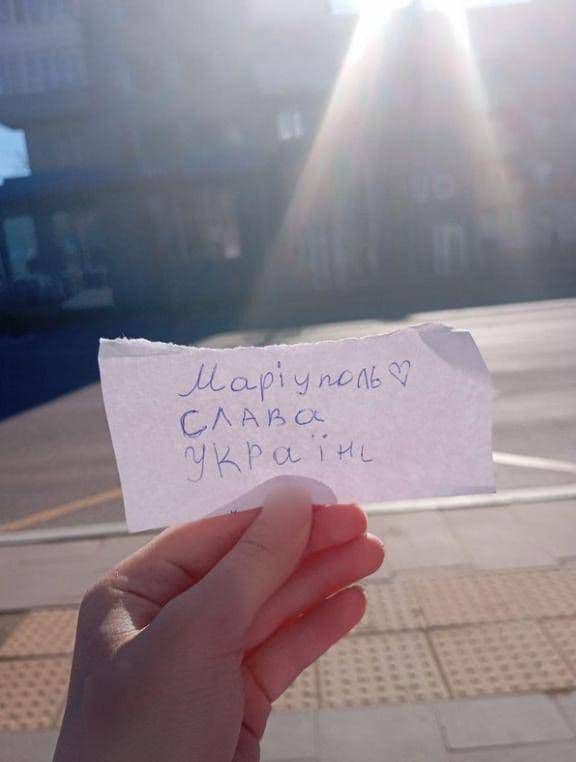 Маріуполь♡
СЛАВа
УКРаїні